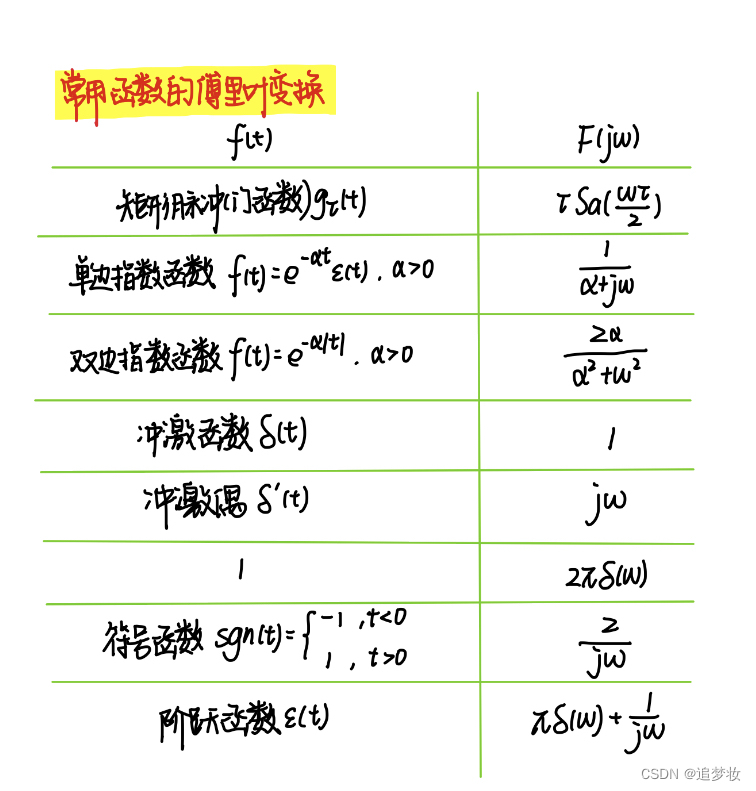 常用函数的傅里叶变换
f(t) F(jω)
矩形脉冲(门函数)gτ(t) τSa(ωτ/2)
单边指数函数 f(t)=e^{-αt}ε(t), α>0 1/(α+jω)
双边指数函数 f(t)=e^{-α|t|}, α>0 2α/(α²+ω²)
冲激函数 δ(t) 1
冲激偶 δ'(t) jω
1 2πδ(ω)
符号函数 sgn(t)={-1, t<0
1, t>0 2/(jω)
阶跃函数 ε(t) πδ(ω)+1/(jω)
CSDN @追梦妆